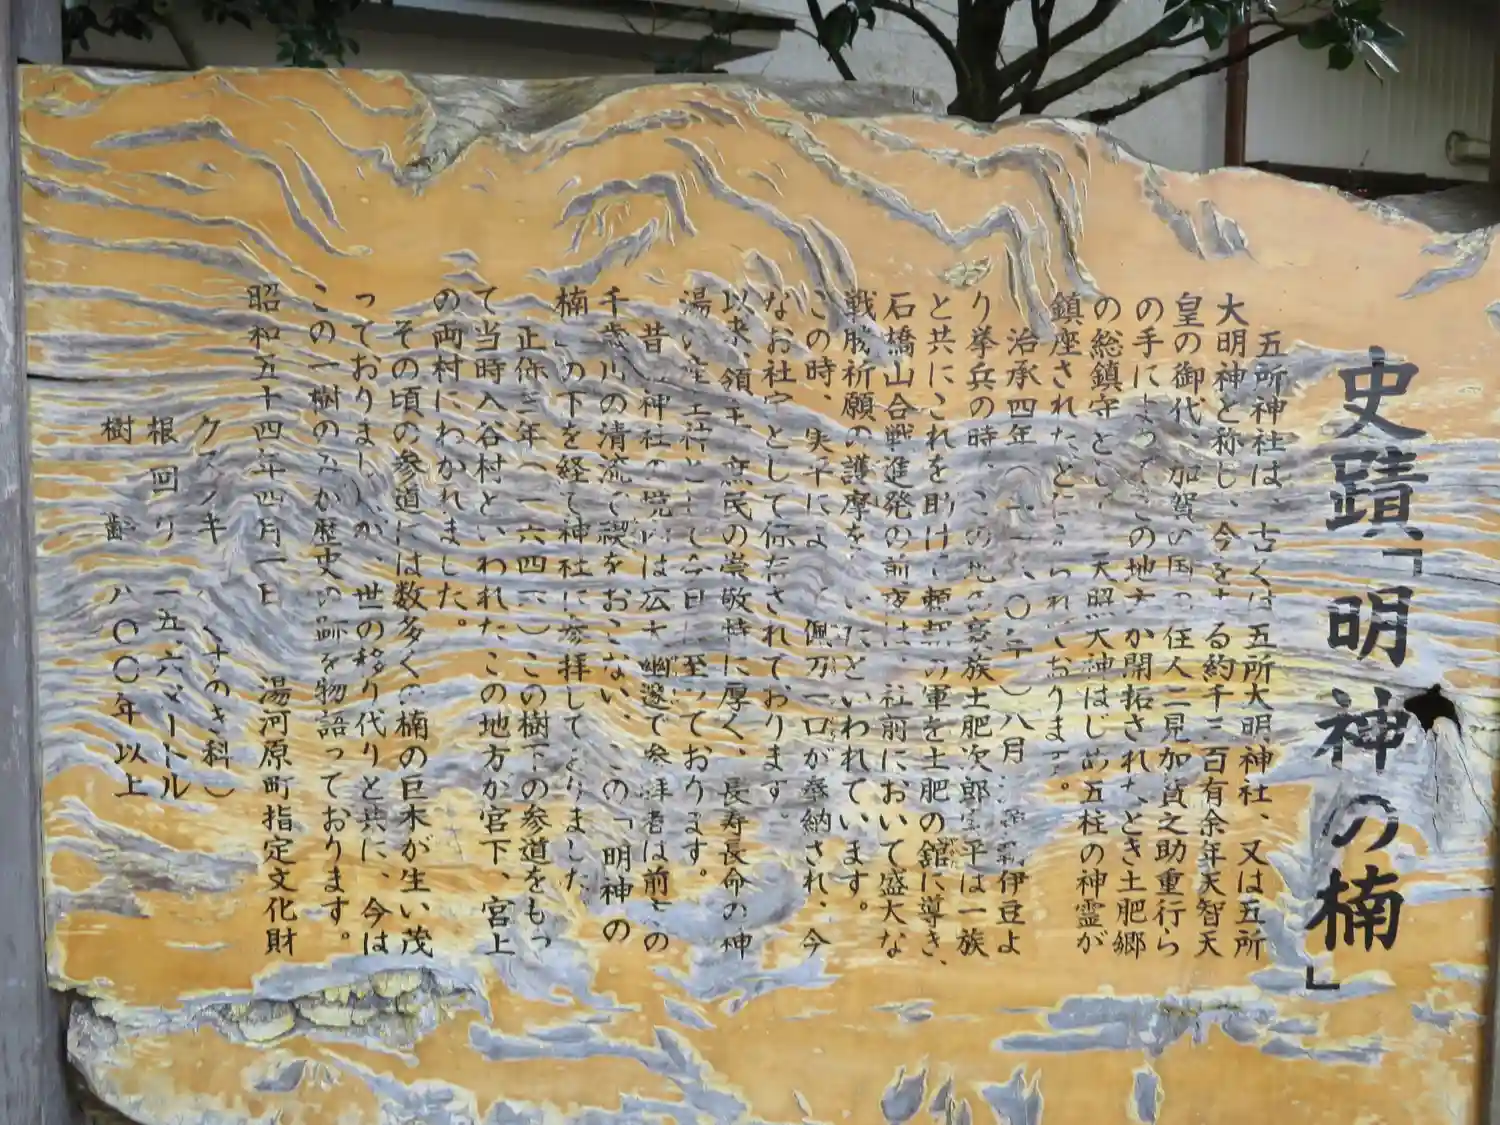 史蹟「明神の楠」
五所神社は、古くは五所大明神社、又は五所
大明神と称し、今をさる約千三百有余年天智天
皇の御代、加賀の国の住人二見加賀之助重行ら
の手によってこの地方が開拓されたとき土肥郷
の総鎮守として、天照大神はじめ五柱の神霊が
鎮座されたとによられております。
治承四年(一一八〇年)八月 伊豆よ
り挙兵の時、この地の豪族土肥次郎実平は一族
と共にこれを助け、頼朝の軍を土肥の館に導き、
石橋山合戦進発の前夜は、社前において盛大な
戦勝祈願の護摩を いたといわれています。
この時、実平によって 佩刀一口が奉納され、今
なお社宝として保存されております。
以来、領主、庶民の崇敬特に厚く、長寿長命の神
湯 として今日に至っております。
昔、神社の境内は広大幽邃で参拝者は前 の
千歳川の清流で禊をおこない、この「明神の
楠」の下を経て神社に参拝しておりました。
正保三年(一六四六)この樹下の参道をもっ
て当時入谷村といわれたこの地方が宮下、宮上
の両村にわかれました。
その頃の参道には数多くの楠の巨木が生い茂
っておりましたが、世の移り代りと共に、今は
この一樹のみが歴史の跡を物語っております。
昭和五十四年四月一日 湯河原町指定文化財
クスノキ(くすのき科)
根回り 一五、六メートル
樹齢 八〇〇年以上